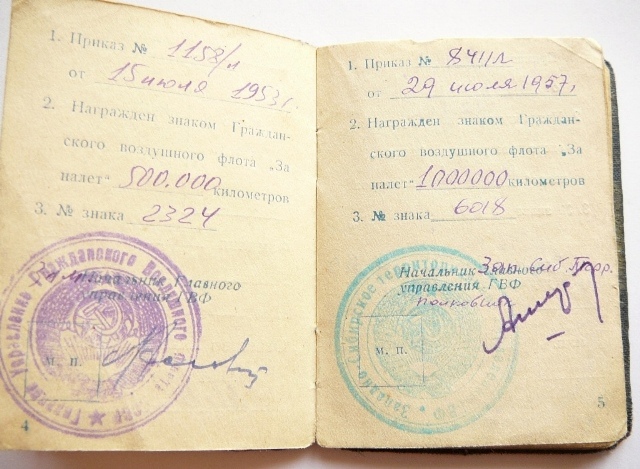 1. Приказ № 1158/л
от 15 июля 1953 г.
2. Награжден знаком Граждан-
ского воздушного флота „За
налет" 500.000 километров
3. № знака 2324
Начальник Главного
управления ГВФ
м. п.
4
1. Приказ № 841/л
от 29 июля 1957 г.
2. Награжден знаком Граждан-
ского воздушного флота „За
налет" 1000000 километров
3. № знака 6018
Начальник Главного Зап. Сиб. Терр.
управления ГВФ
полковник
м. п.
5